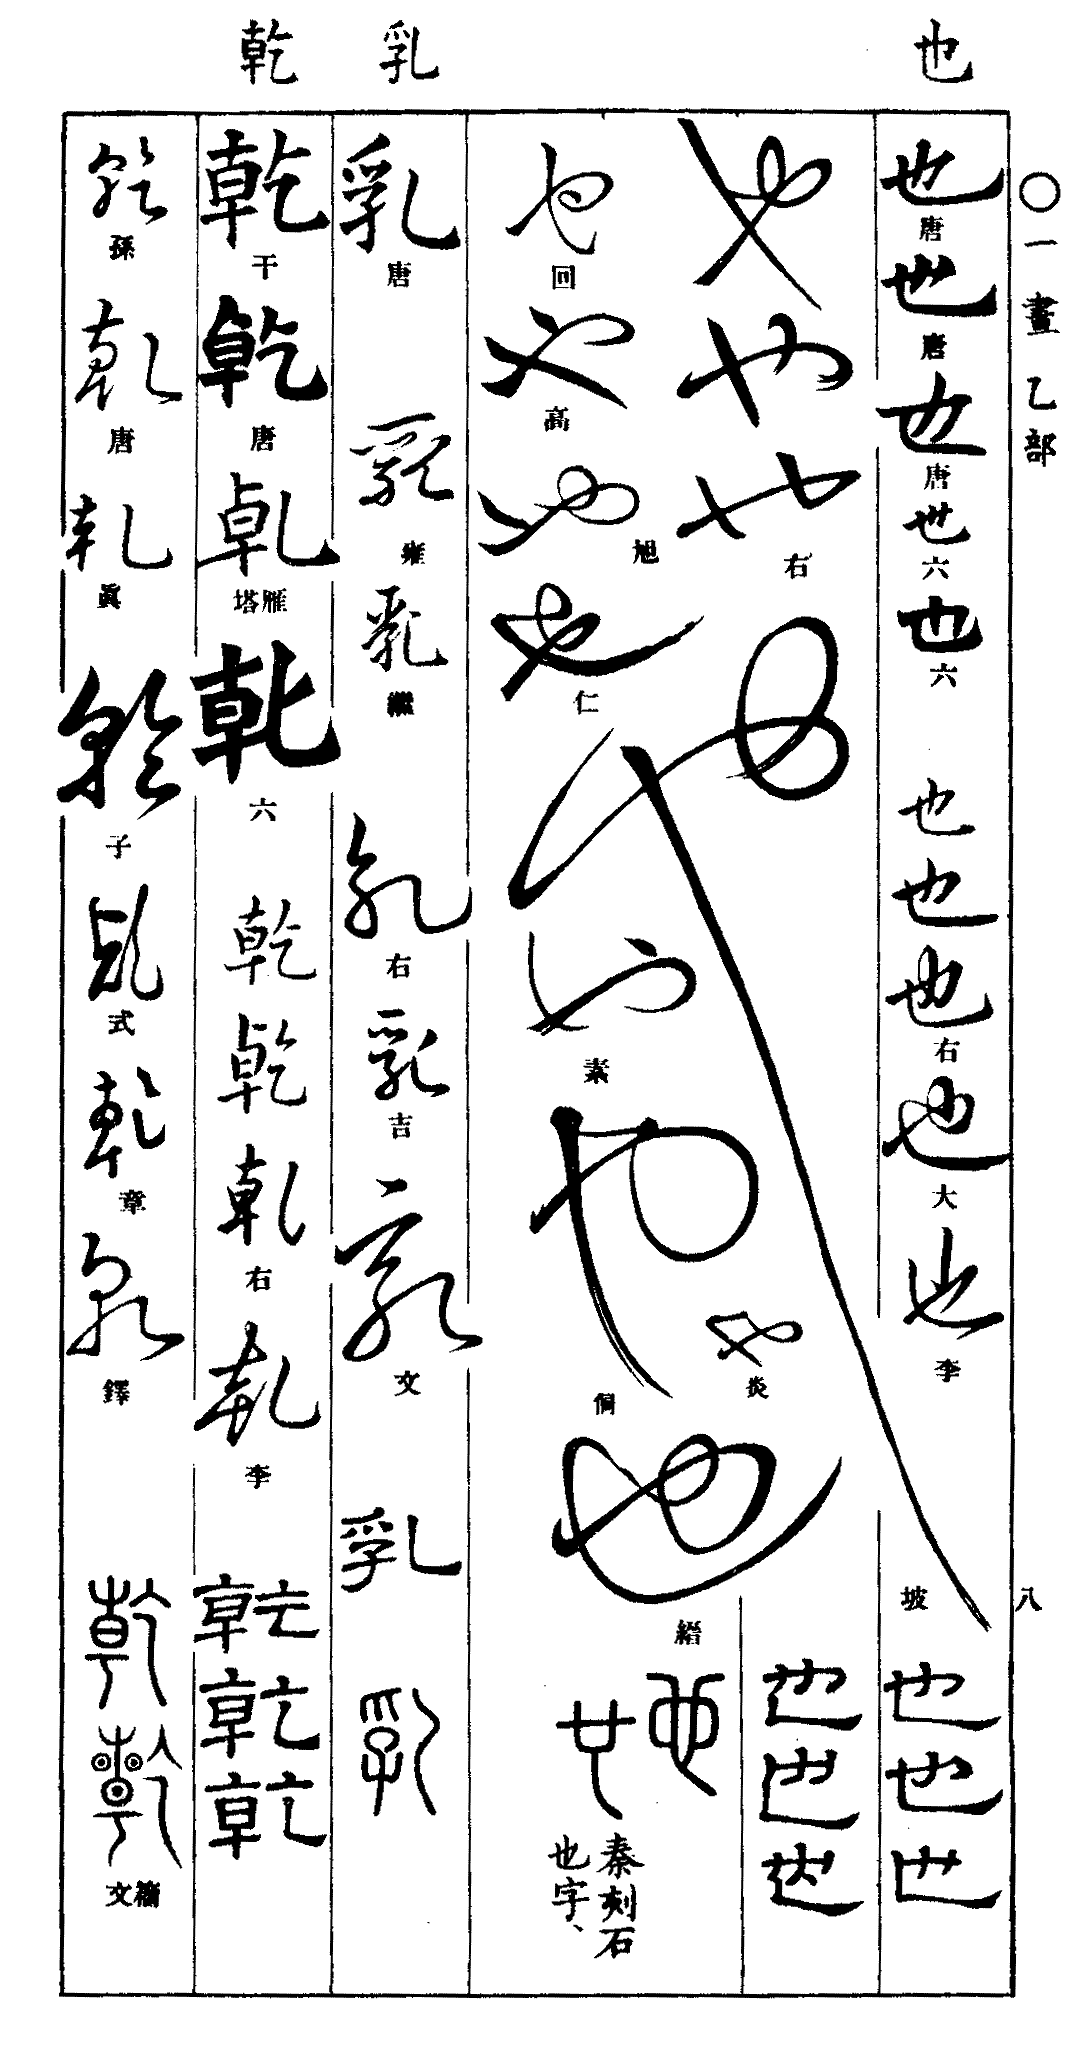 〇一畫 乙部
八
也
乳
乾
也
唐
也
唐
也
唐
也
六
也
六
也
也
也
右
也
大
也
李
坡
也
也
也
也
也
也
也
也
也
右
也
回
也
高
也
旭
也
仁
也
也
素
也
侗
也
炎
也
縉
秦刻石
也字、
乳
唐
乳
雍
乳
繼
乳
右
乳
吉
乳
文
乳
乳
乾
干
乾
唐
乾
雁塔
乾
六
乾
乾
乾
右
乾
李
乾
乾
乾
乾
孫
乾
唐
乾
眞
乾
子
乾
式
乾
章
乾
鐸
乾
乾
籀文